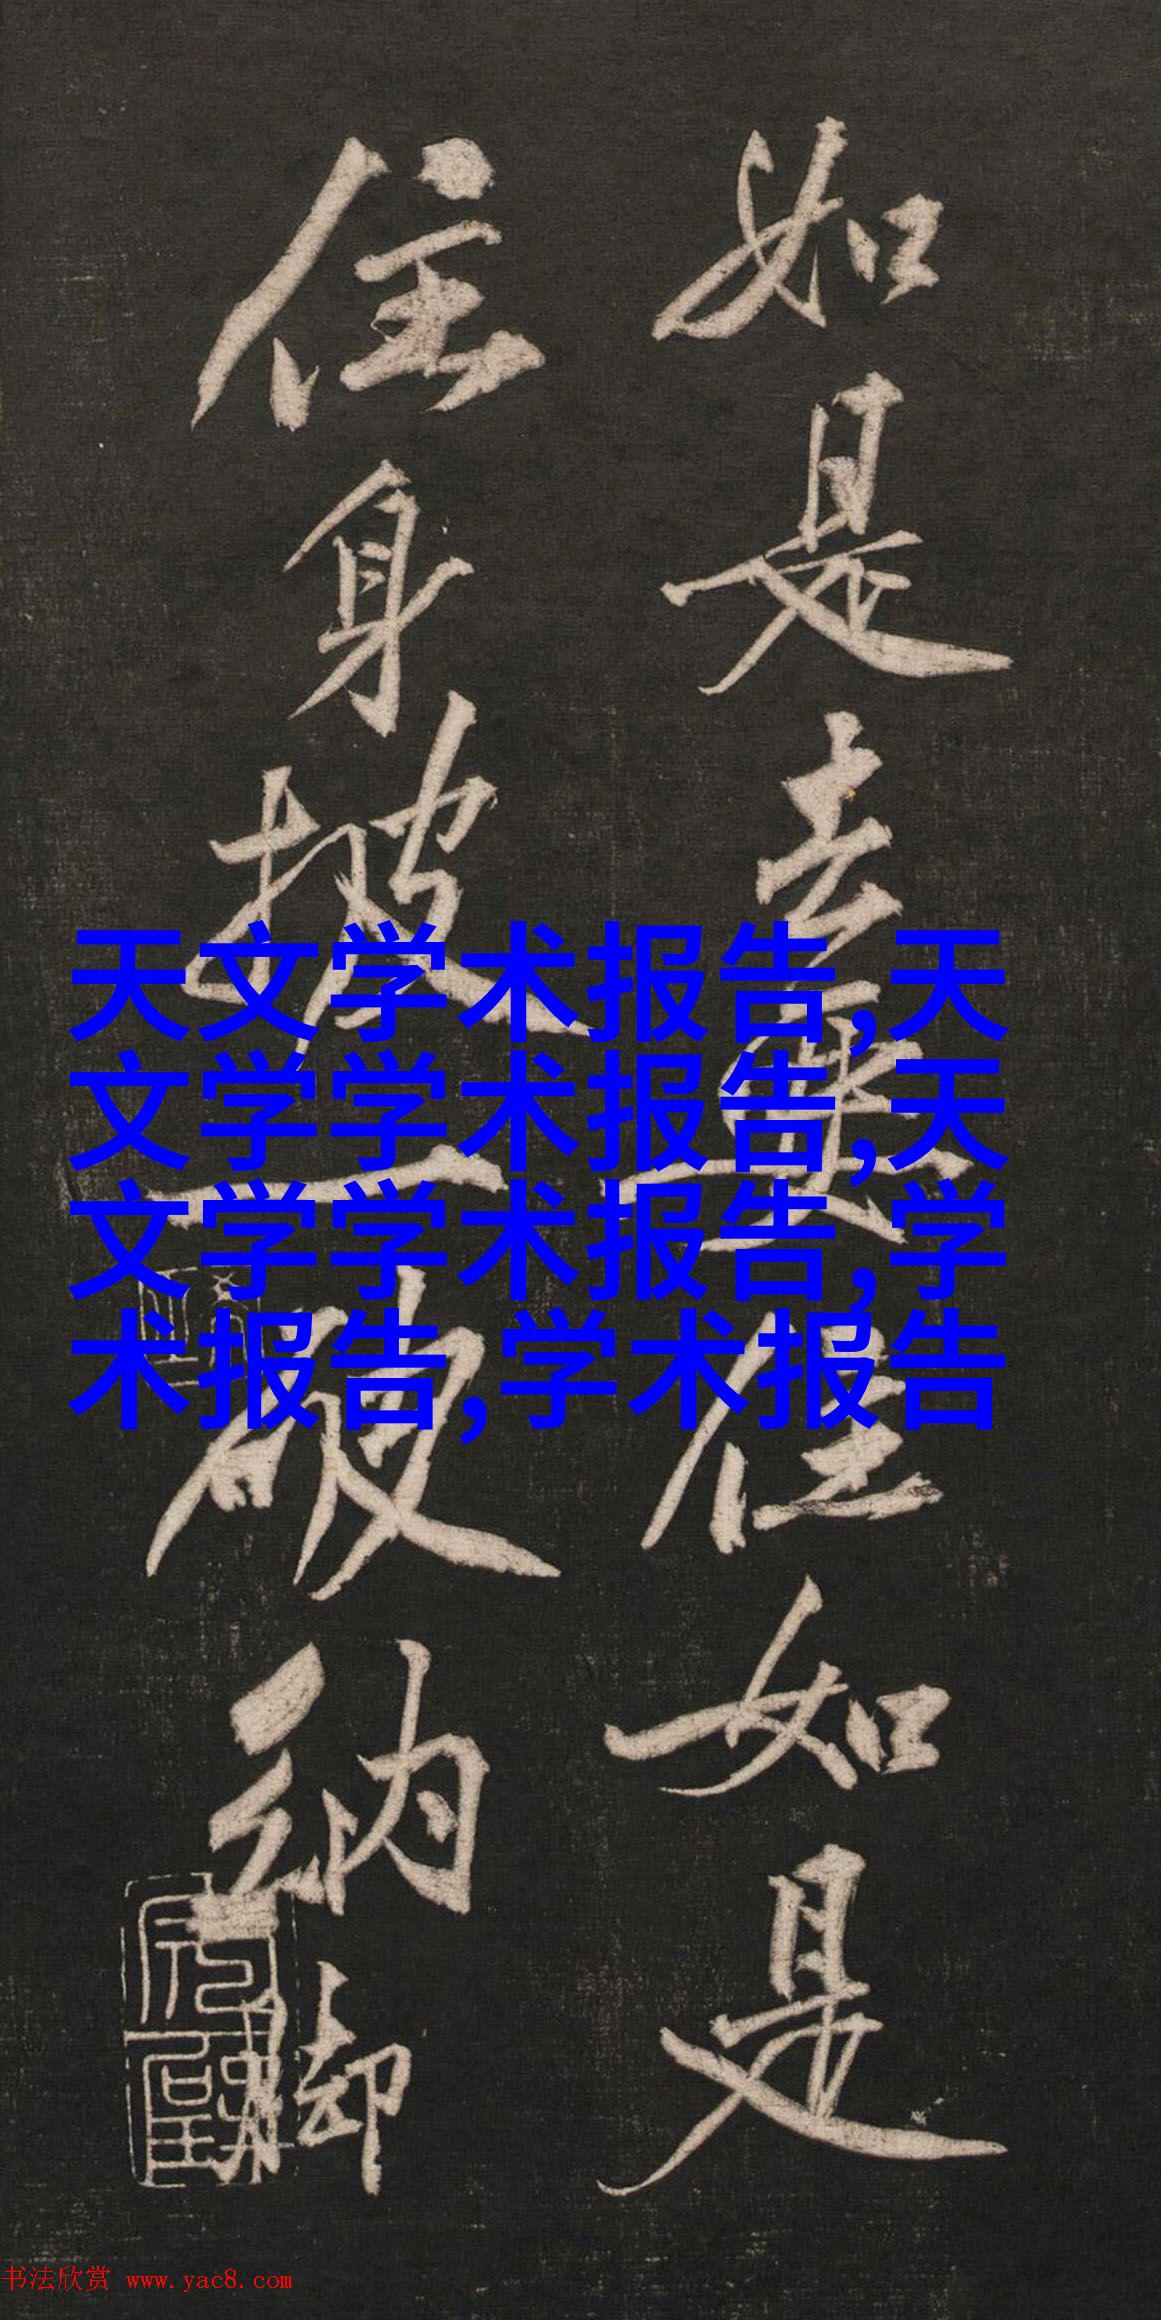 如是去住如是
住身披一破納脚
天文学术报告,天
文学学术报告,天
文学学术报告,学
术报告,学术报告
书法欣赏 www.yac8.com